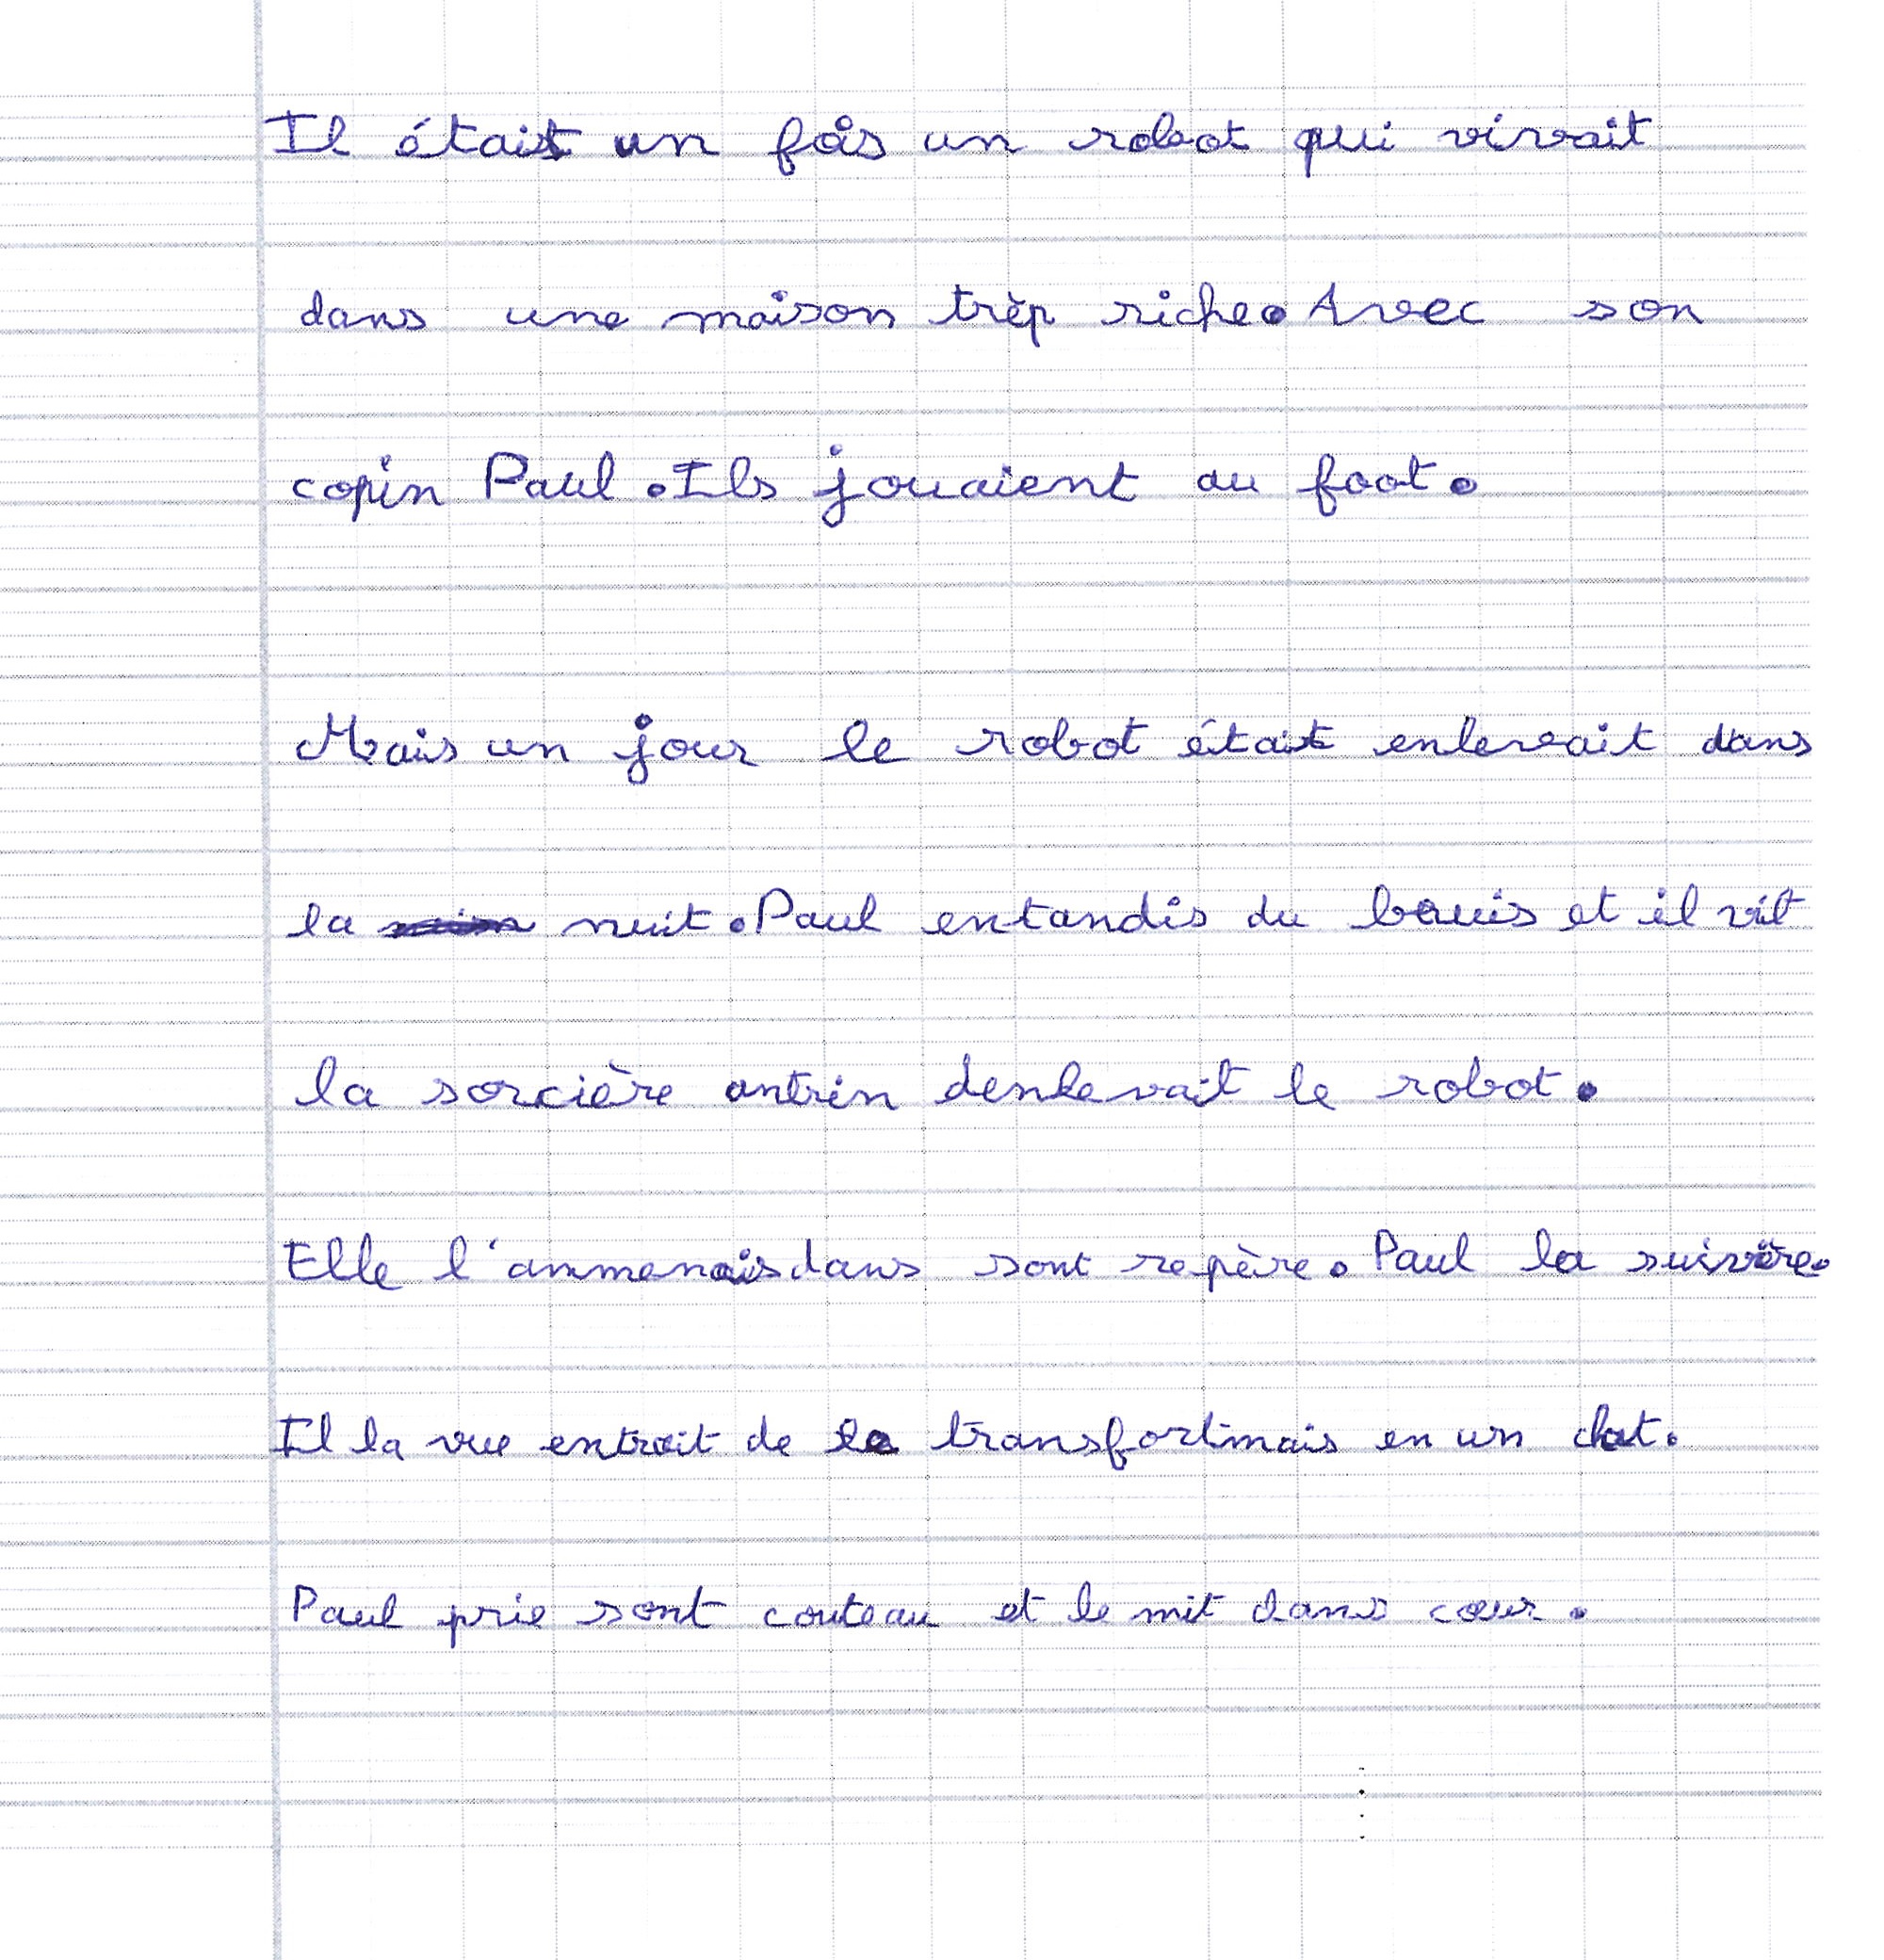 Il était un fois un robot qui vivait
dans une maison trèp riche. Avec son
copin Paul. Ils jouaient au foot.
Mais un jour le robot était enlevait dans
la nuit. Paul entandis du bruis et il vit
la sorcière antrin denlevait le robot.
Elle l'ammenais dans sont repère. Paul la suivère.
Il la vue entrait de le transfortimais en un chat.
Paul prie sont couteau et le mit dans cœur.